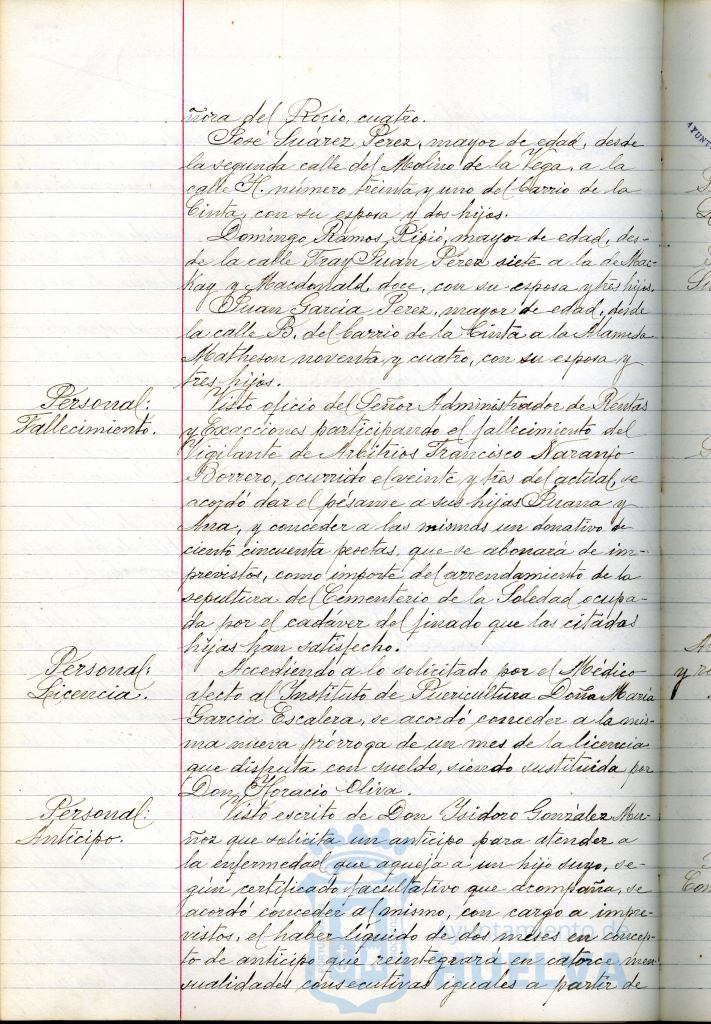 ñora del Rocío, cuatro.
José Suárez Pérez, mayor de edad, desde
la segunda calle del Molino de la Vega, a la
calle H. número treinta y uno del barrio de la
Cinta, con su esposa y dos hijos.
Domingo Ramos Pipió, mayor de edad, des-
de la calle Fray Juan Pérez siete a la de Mac-
kay y Macdonald, doce, con su esposa y tres hijos.
Juan García Perez, mayor de edad, desde
la calle B. del barrio de la Cinta a la Alameda
Matheson noventa y cuatro, con su esposa y
tres hijos.
Personal:
Fallecimiento.
Visto oficio del Señor Administrador de Rentas
y Exacciones participando el fallecimiento del
Vigilante de Arbitrios Francisco Naranjo
Borrero, ocurrido el veinte y tres del actual, se
acordó dar el pésame a sus hijas Juana y
Ana, y conceder a las mismas un donativo de
ciento cincuenta pesetas, que se abonará de im-
previstos, como importe del arrendamiento de la
sepultura del Cementerio de la Soledad ocupa-
da por el cadaver del finado que las citadas
hijas han satisfecho.
Personal:
Licencia.
Accediendo a lo solicitado por el Médico
afecto al Instituto de Puericultura Doña María
García Escalera, se acordó conceder a la mis-
ma nueva prórroga de un mes de la licencia
que disfruta con sueldo, siendo sustituida por
Don Horacio Oliva.
Personal:
Anticipo.
Visto escrito de Don Isidoro González Mu-
ñoz que solicita un anticipo para atender a
la enfermedad que aqueja a un hijo suyo, se-
gún certificado facultativo que acompaña, se
acordó conceder al mismo, con cargo a impre-
vistos, el haber líquido de dos meses en concep-
to de anticipo que reintegrará en catorce men-
sualidades consecutivas iguales a partir de
Ayuntamiento de
HUELVA